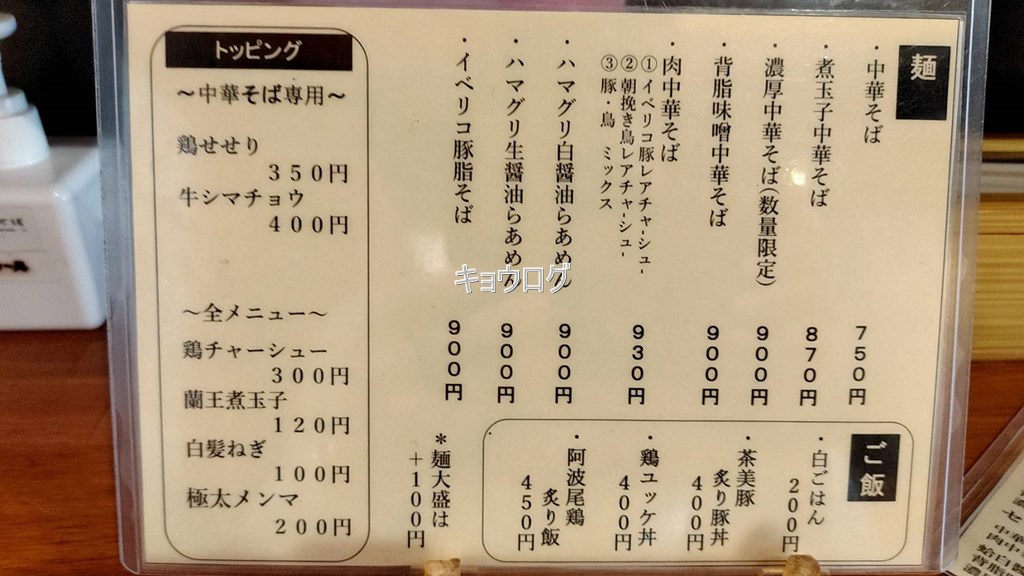 麺
・中華そば 750円
・煮玉子中華そば 870円
・濃厚中華そば(数量限定) 900円
・背脂味噌中華そば 900円
・肉中華そば 930円
①イベリコ豚レアチャーシュー
②朝挽き鳥レアチャーシュー
③豚・鳥 ミックス
・ハマグリ白醤油らあめん 900円
・ハマグリ生醤油らあめん 900円
・イベリコ豚脂そば 900円
*麺大盛は
+100円
ご飯
・白ごはん
200円
・茶美豚
炙り豚丼
400円
・鶏ユッケ丼
400円
・阿波尾鶏
炙り飯
450円
トッピング
~中華そば専用~
鶏せせり
350円
牛シマチョウ
400円
~全メニュー~
鶏チャーシュー
300円
蘭王煮玉子
120円
白髪ねぎ
100円
極太メンマ
200円
キョウログ